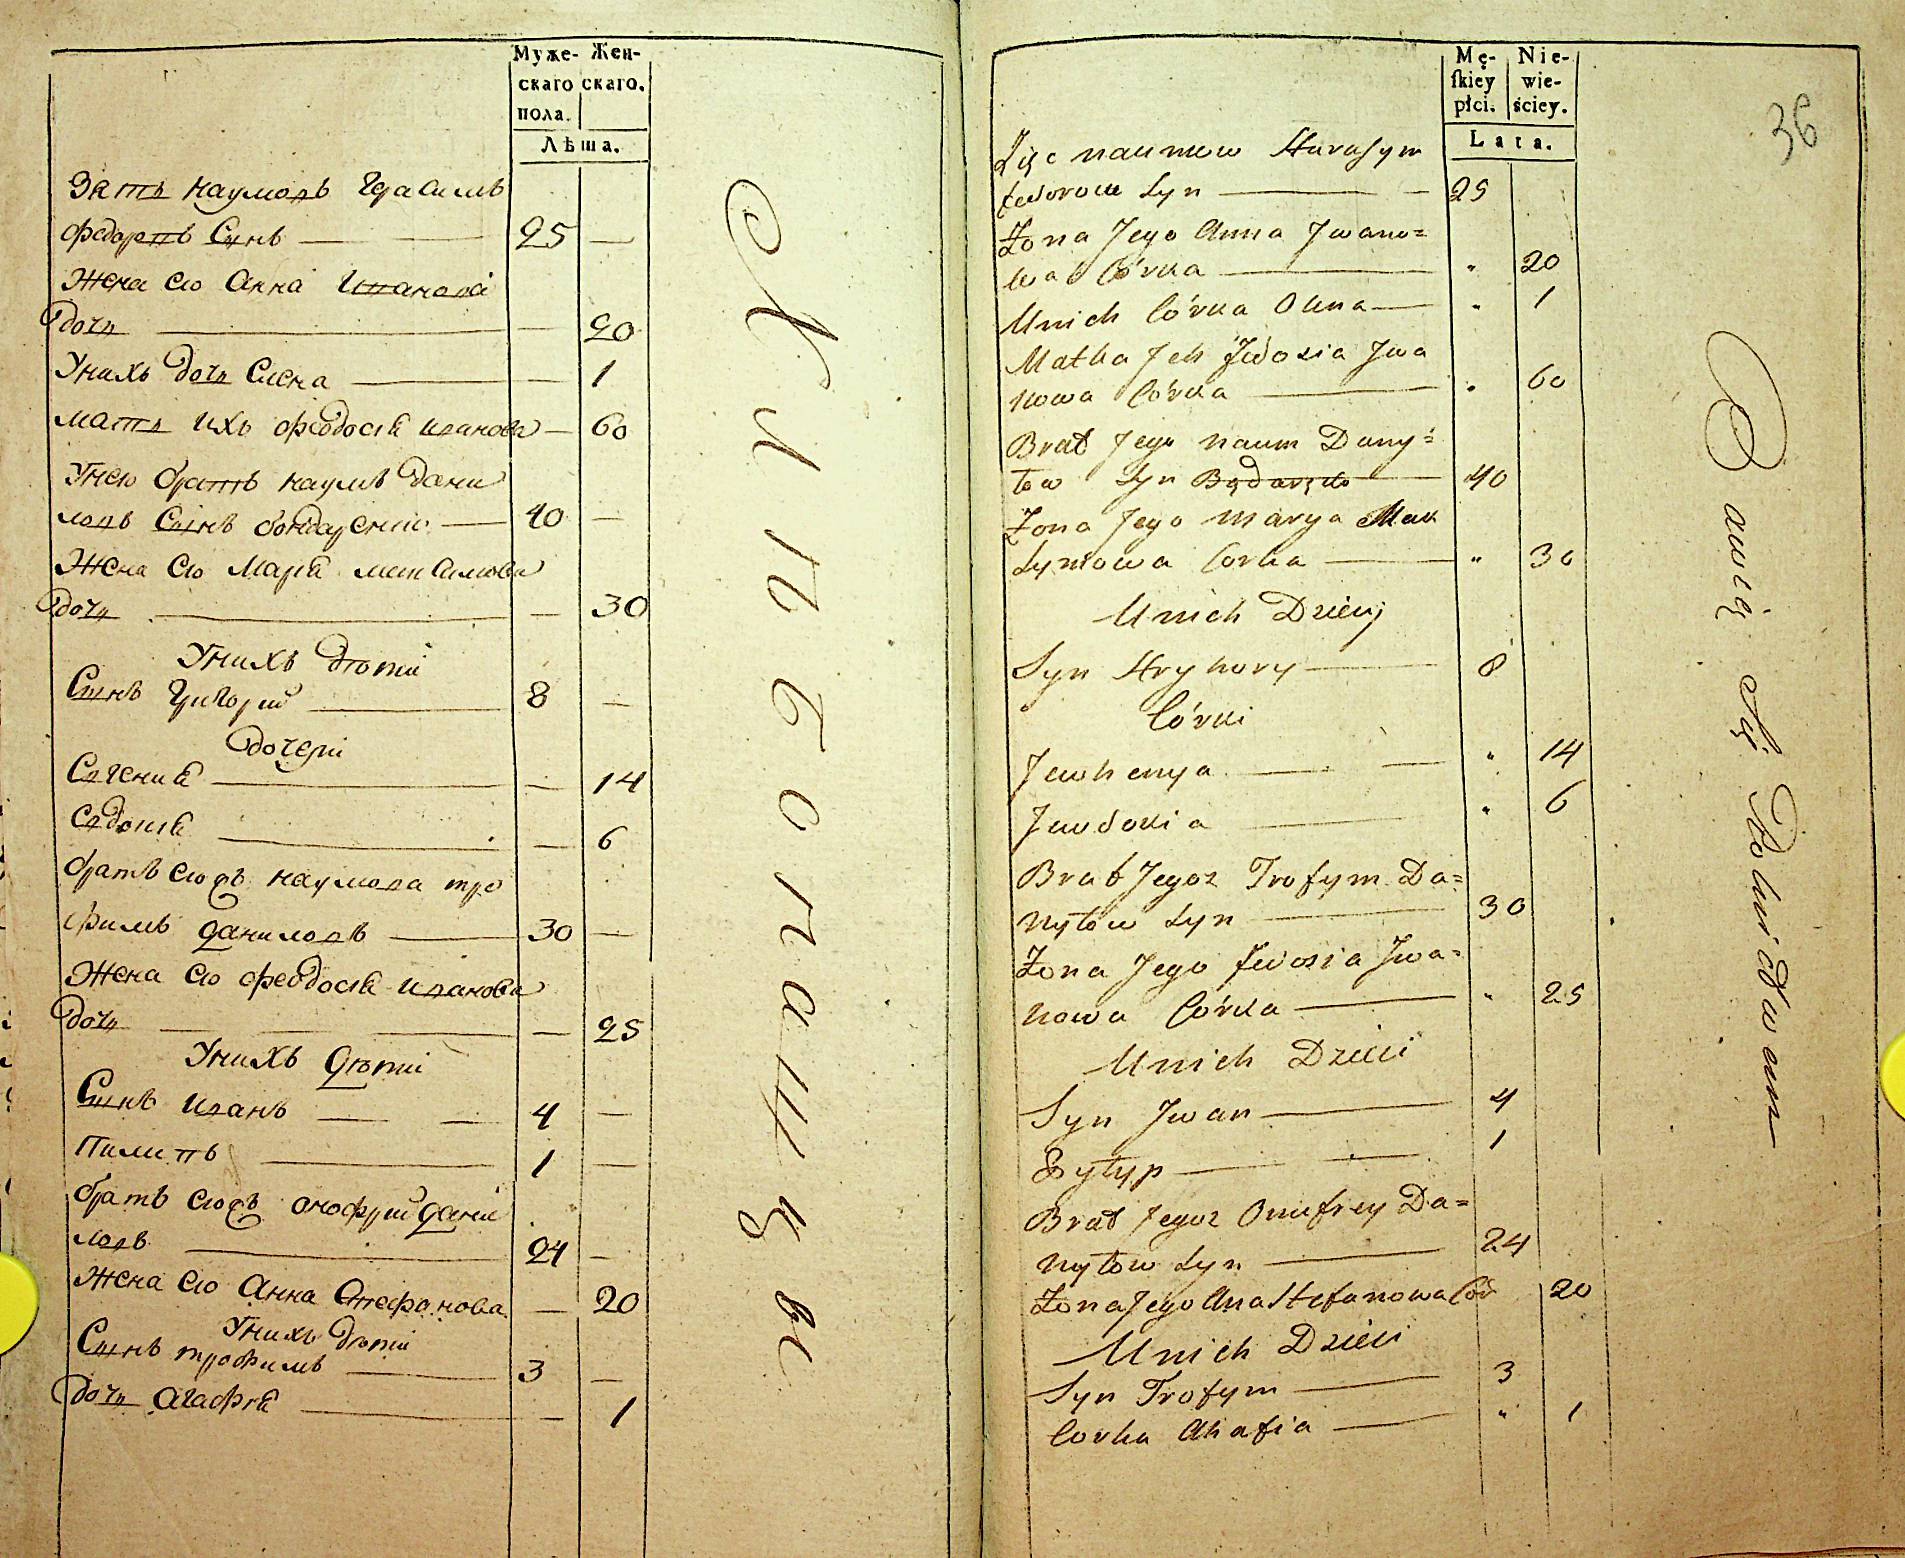 Муже- Жен-
скаго скаго.
пола.
Лѣта.
Зять наумовъ Герасимъ
федоровъ Сынъ 25 —
Жена его Анна Иванова
дочь — 20
У нихъ дочь Елена — 1
мать ихъ феодосія иванова — 60
У нею братъ наумъ дани
ловъ Сынъ бондаренко 40 —
Жена его Марія максимова
дочь — 30
У нихъ дѣти
Сынъ Григорій 8 —
дочери
Евгенія — 14
Евдокія — 6
братъ его наумова тро
фимъ даниловъ 30 —
Жена его феодосія иванова
дочь — 25
У нихъ дѣти
Сынъ иванъ 4 —
Пилипъ 1 —
братъ его онофрій дани
ловъ 24 —
Жена его Анна Стефанова — 20
У нихъ дѣти
Сынъ трофимъ 3 —
дочь Агафія — 1
Mę- Nie-
ſkiey wie-
płci. ściey.
Lata.
36
Zięc naumow Harasym
fedorow Syn 25
Żona Jego Anna Jwano=
wa Córka " 20
Unich Córka Olena " 1
Matka Jch fedosia Jwa
nowa Córka " 60
Brat Jego naum Dany=
łow Syn 40
Żona Jego marya Mak
symowa Corka " 30
Unich Dzieci
Syn Hryhory 8
Córki
Jewhenya " 14
Jewdokia " 6
Brat Jegoz Trofym Da=
nyłow Syn 30
Żona Jego fedosia Jwa=
nowa Córka " 25
Unich Dzieci
Syn Jwan 4
1
Brat Jegoz Onufrey Da=
nyłow Syn 24
Żona Jego Ana Stefanowa Cór 20
Unich Dzieci
Syn Trofym 3
Corka Ahafia " 1